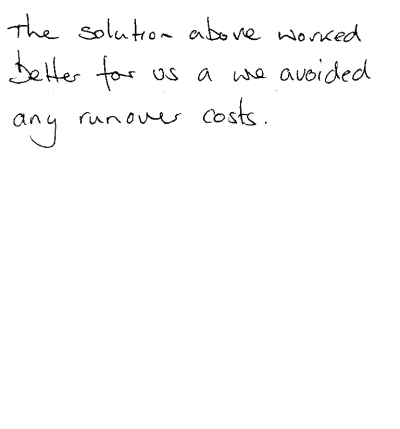 The solution above worked
better for us a we avoided
any runover costs.